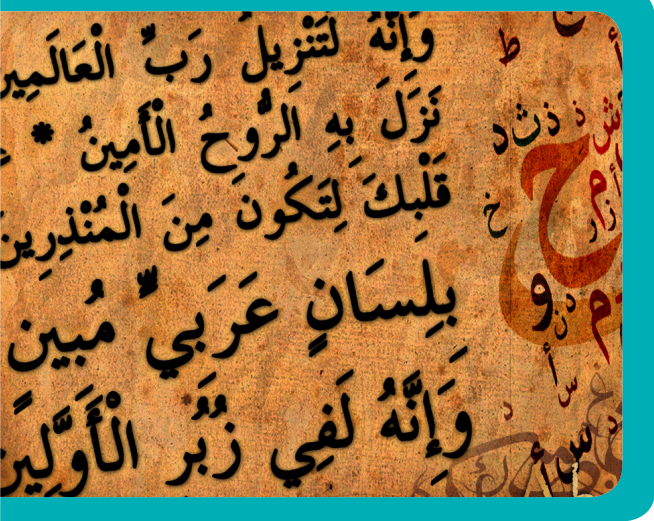 وَإِنَّهُ لَتَنْزِيلُ رَبِّ الْعَالَمِين
نَزَلَ بِهِ الرُّوحُ الْأَمِينُ *
قَلْبِكَ لِتَكُونَ مِنَ الْمُنْذِرِين
بِلِسَانٍ عَرَبِيٍّ مُبِين
وَإِنَّهُ لَفِي زُبُرِ الْأَوَّلِين